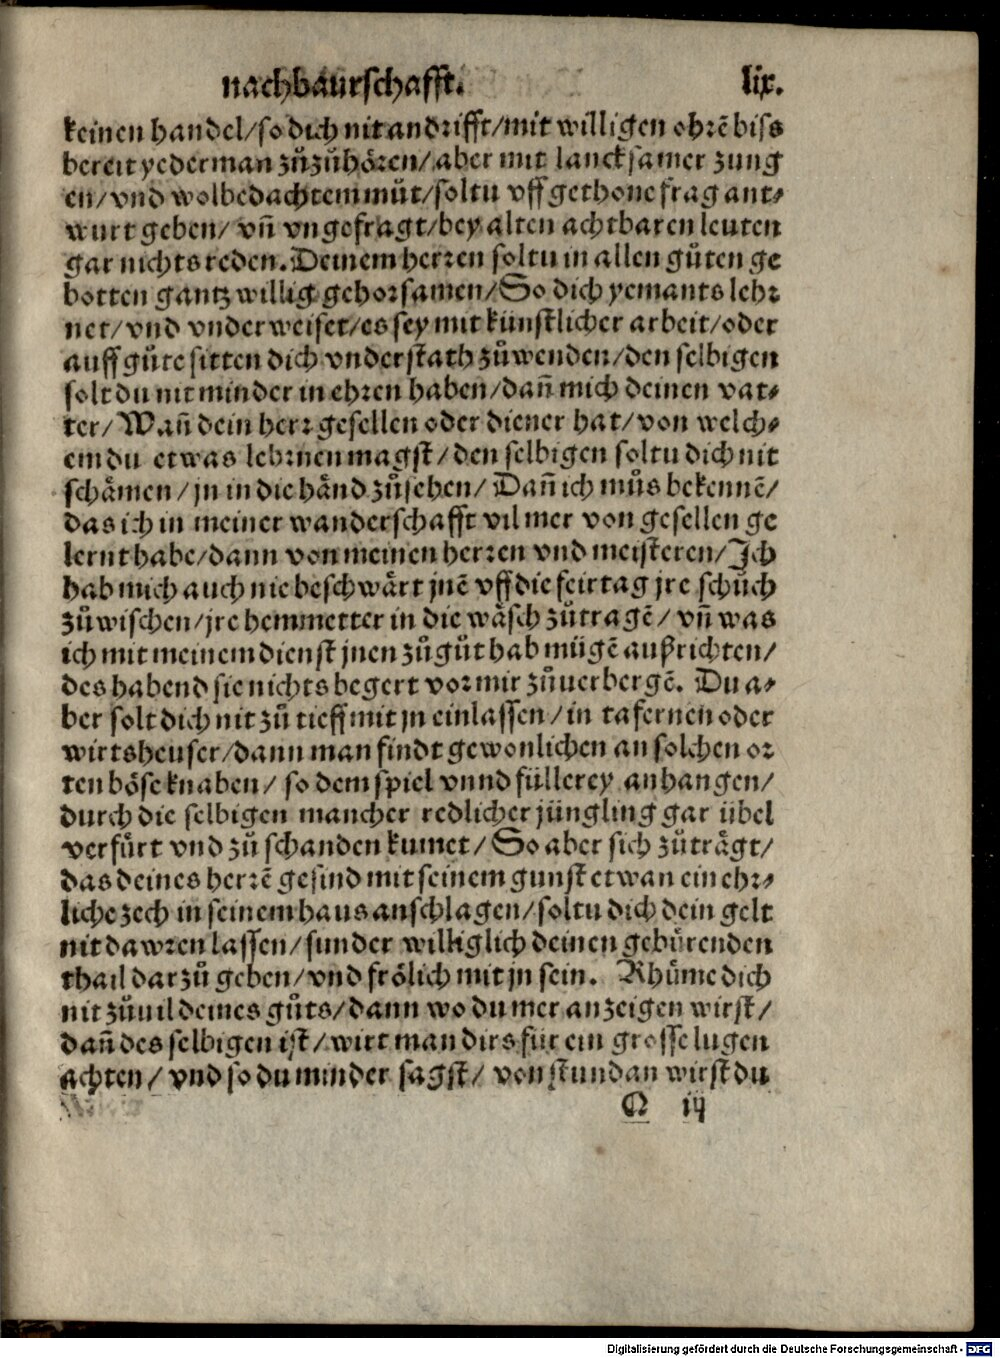 nachbaurschafft. lix.
keinen handel/so dich nit andrifft/mit willigen ohrē biss
bereit yederman zůzůhören/aber mit lancksamer zung
en/vnd wolbedachtem můt/soltu vff gethone frag ant-
wurt geben/ vn̄ vngefragt/bey alten achtbaren leuten
gar nichts reden. Deinem herren soltu in allen gůten ge
botten gantz willig gehorsamen/So dich yemants lehr
net/vnd vnderweiset/es sey mit künstlicher arbeit/oder
auff gůte sitten dich vnderstath zůwenden/den selbigen
solt du nit minder in ehren haben/dan̄ mich deinen vat-
ter/ Wan̄ dein herr gesellen oder diener hat/von welch-
em du etwas lehrnen magst/den selbigen soltu dich nit
schämen/jn in die händ zůsehen/ Dan̄ ich můs bekennē/
das ich in meiner wanderschafft vil mer von gesellen ge
lernt habe/dann von meinen herren vnd meisteren/Ich
hab mich auch nie beschwärt jnē vff die feirtag jre schůch
zůwischen/jre hemmetter in die wäsch zůtragē/ vn̄ was
ich mit meinem dienst jnen zůgůt hab mügē außrichten/
des habend sie nichts begert vor mir zůuerbergē. Du a-
ber solt dich nit zů tieff mit jn einlassen/in tafernen oder
wirtsheuser/dann man findt gewonlichen an solchen or
ten böse knaben/ so dem spiel vnnd füllerey anhangen/
durch die selbigen mancher redlicher jüngling gar übel
verfürt vnd zů schanden kumet/So aber sich zůträgt/
das deines herrē gesind mit seinem gunst etwan ein ehr-
liche zech in seinem haus anschlagen/soltu dich dein gelt
nit dawren lassen/sunder williglich deinen gebürenden
thail darzů geben/vnd frölich mit jn sein. Rhüme dich
nit zůuil deines gůts/dann wo du mer anzeigen wirst/
dan̄ des selbigen ist/wirt man dirs für ein grosse lugen
achten/ vnd so du minder sagst/ von stundan wirst du
Q iij
Digitalisierung gefördert durch die Deutsche Forschungsgemeinschaft - DFG